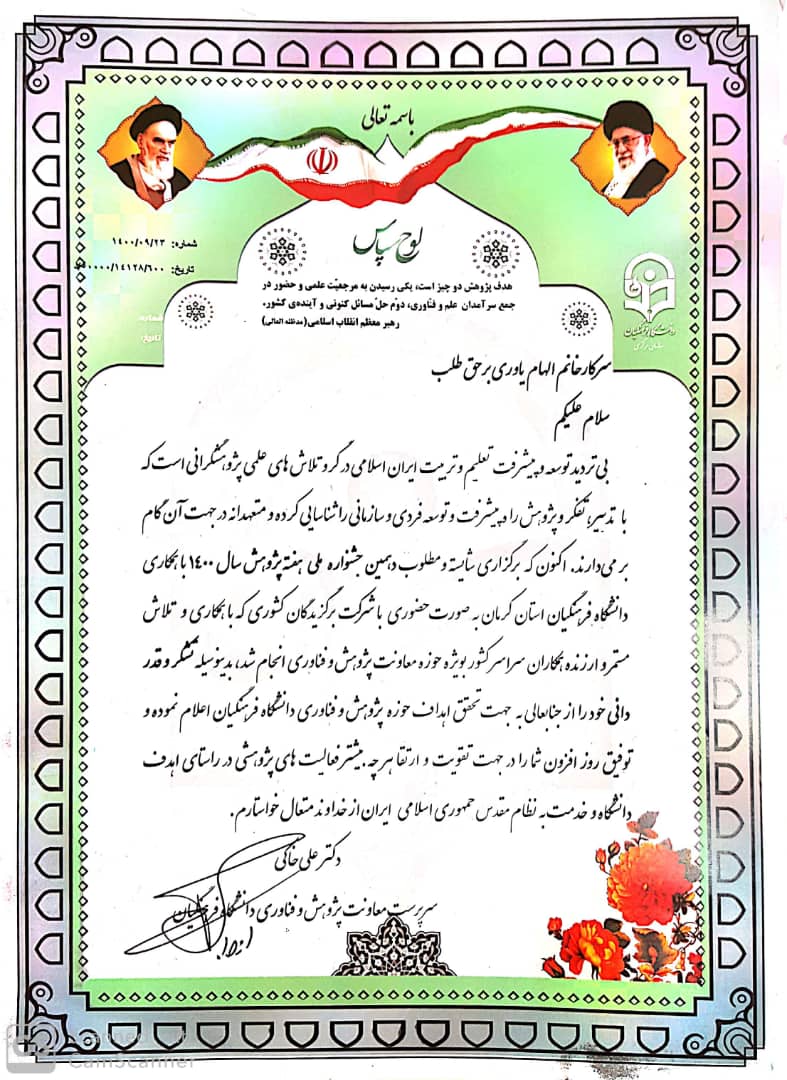 باسمه تعالی
لوح سپاس
شماره: ۱۴۰۰/۰۹/۲۳
تاریخ: ۰۰۰۰/۱۴۱۲۸/۶۰۰
هدف پژوهش دو چیز است، یکی رسیدن به مرجعیّت علمی و حضور در
جمع سرآمدان علم و فنّاوری، دوّم حلّ مسائل کنونی و آینده‌ی کشور.
رهبر معظم انقلاب اسلامی(مدظله العالی)
شماره:
تاریخ:
دانشگاه فرهنگیان
سازمان مرکزی
سرکار خانم الهام یاوری برحق طلب
سلام علیکم
بی تردید توسعه و پیشرفت تعلیم و تربیت ایران اسلامی در گرو تلاش های علمی پژوهشگرانی است که
با تدبیر، تفکر و پژوهش راه پیشرفت و توسعه فردی و سازمانی را شناسایی کرده و متعهدانه در جهت آن گام
بر می‌دارند. اکنون که برگزاری شایسته و مطلوب دهمین جشنواره ملی هفته پژوهش سال ۱۴۰۰ با همکاری
دانشگاه فرهنگیان استان کرمان به صورت حضوری با شرکت برگزیدگان کشوری که با همکاری و تلاش
مستمر و ارزنده همکاران سراسر کشور بویژه حوزه معاونت پژوهش و فناوری انجام شد، بدینوسیله تشکر و قدر
دانی خود را از جنابعالی به جهت تحقق اهداف حوزه پژوهش و فناوری دانشگاه فرهنگیان اعلام نموده و
توفیق روز افزون شما را در جهت تقویت و ارتقا هر چه بیشتر فعالیت های پژوهشی در راستای اهدف
دانشگاه و خدمت به نظام مقدس جمهوری اسلامی ایران از خداوند متعال خواستارم.
دکتر علی خاکی
سرپرست معاونت پژوهش و فناوری دانشگاه فرهنگیان
CamScanner